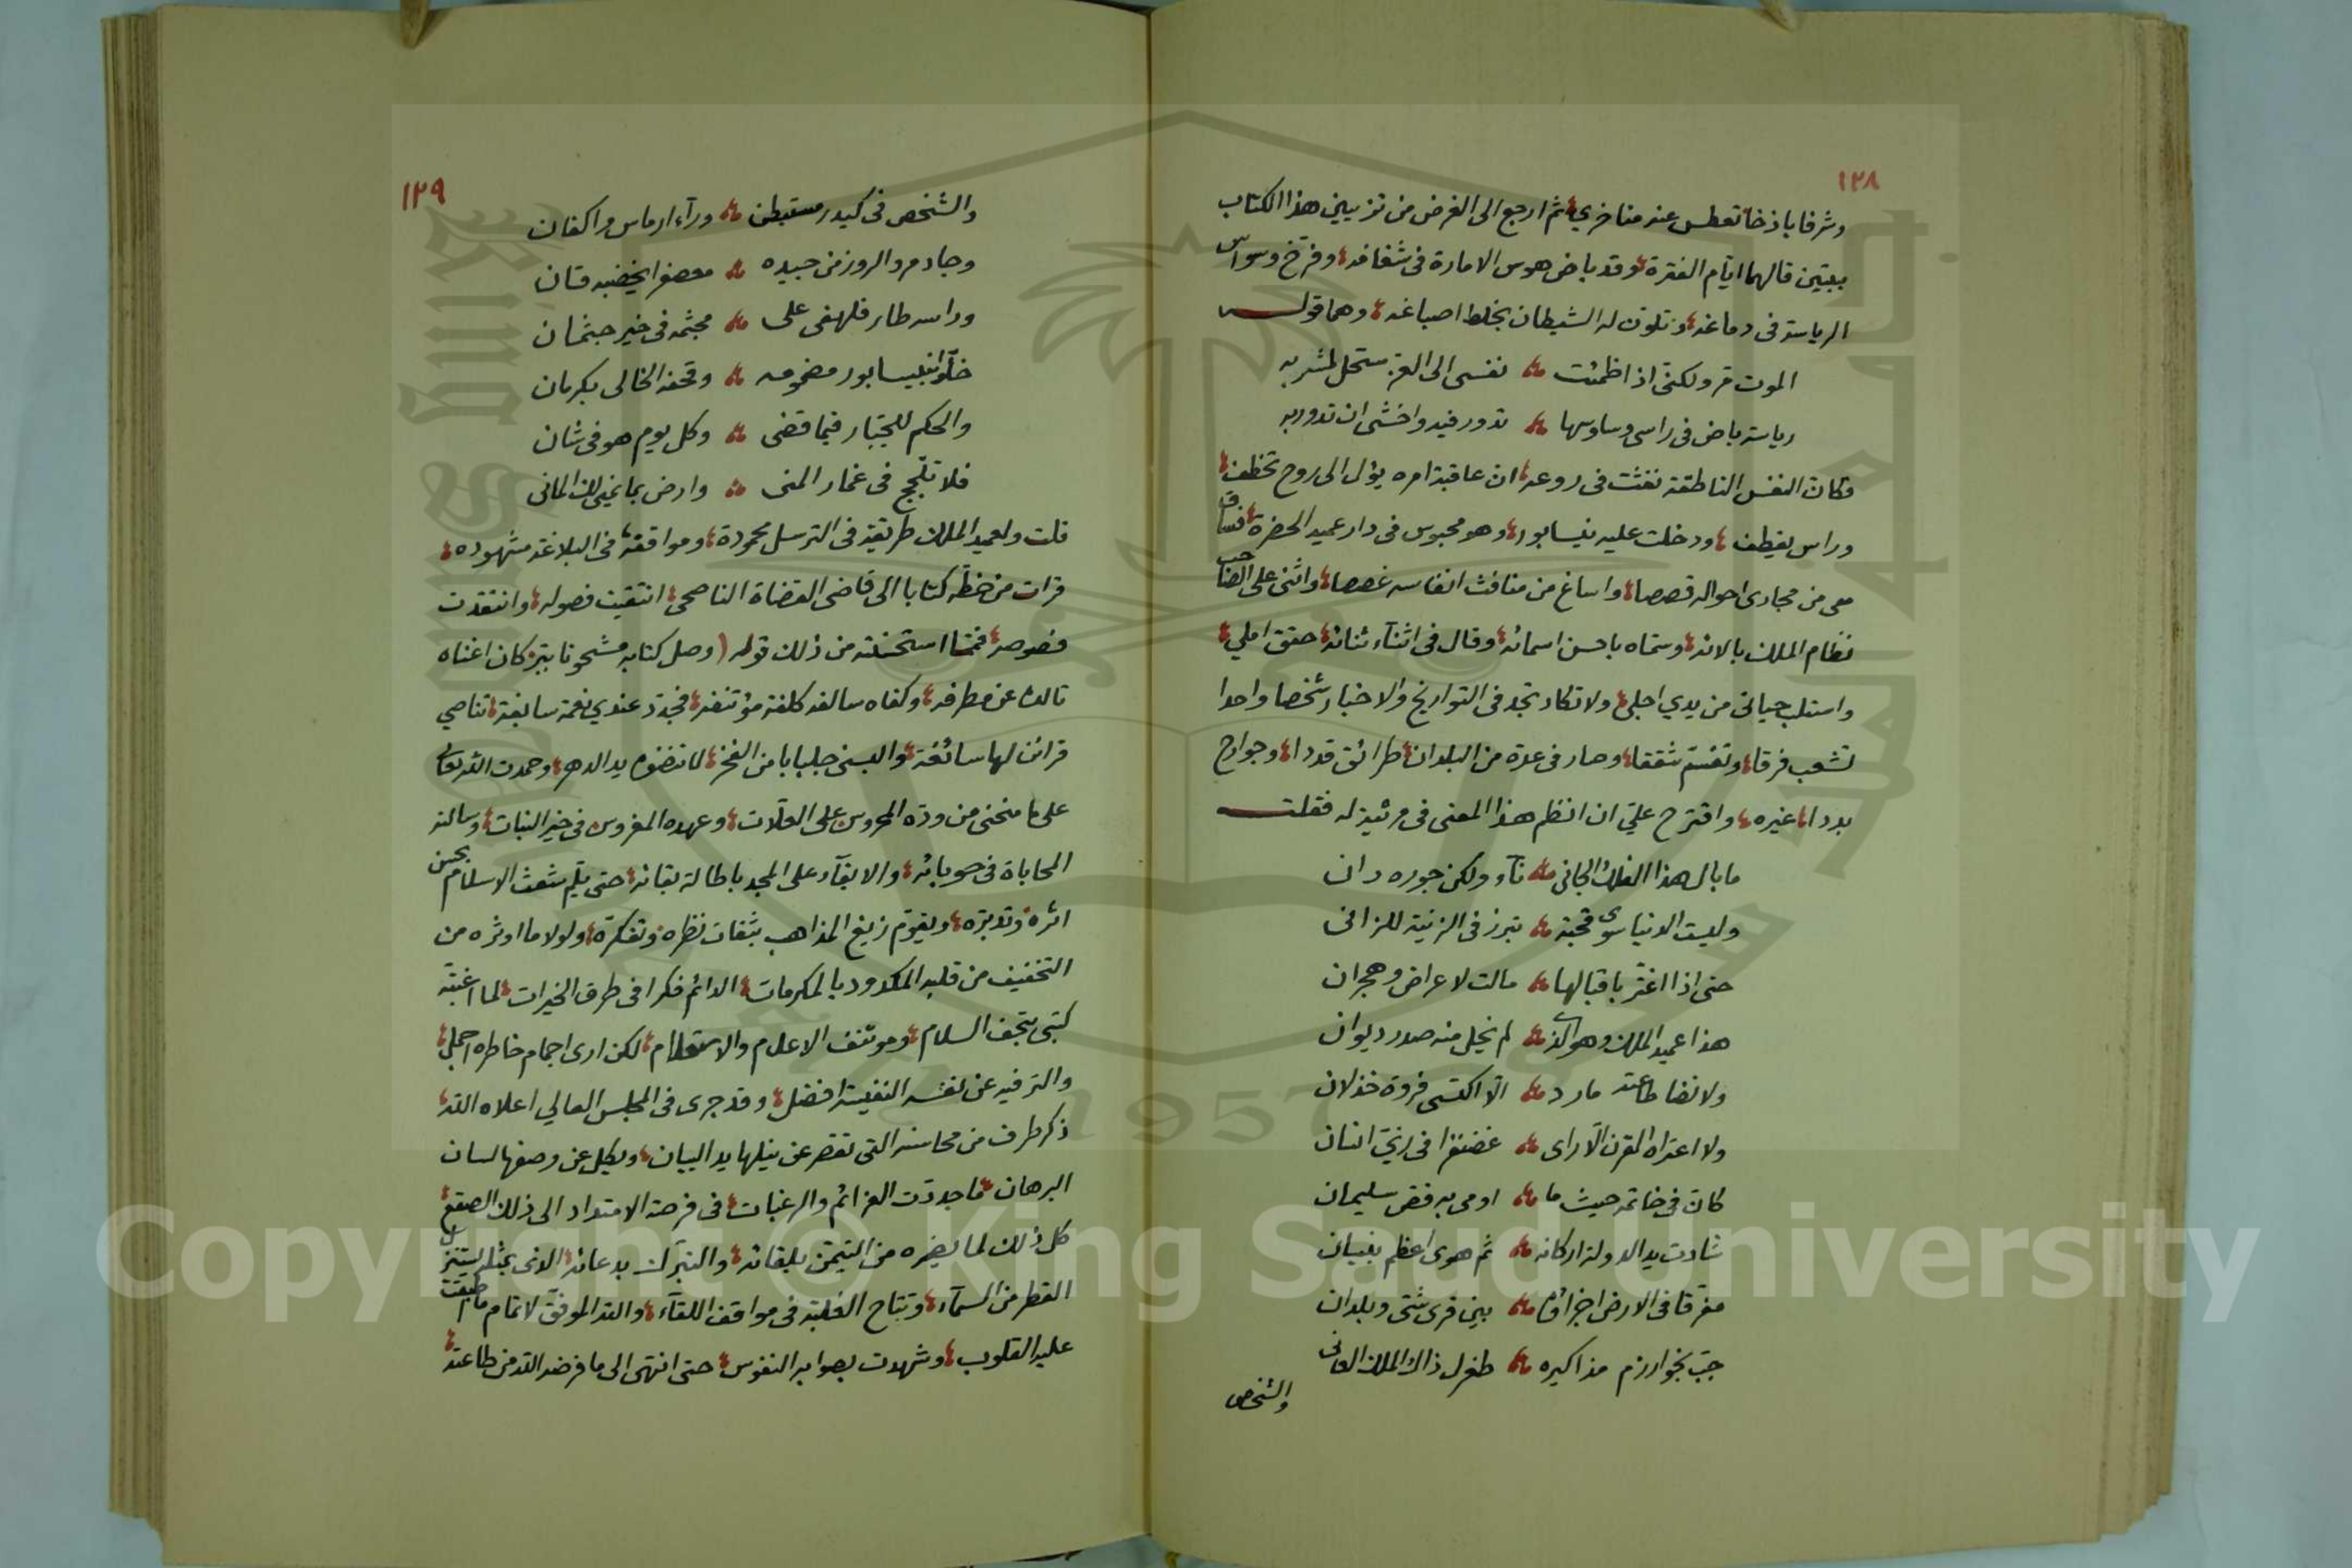 ١٢٨
وشرفا باذخا تعطس عنه مناخري ثم ارجع الى الغرض من تزيين هذا الكتاب
ببيتين قالهما ايام الفترة وقد باض هوس الامارة في شغافه وفرخ وسواس
الرياسة في دماغه وتلون له الشيطان بخلط اصباغه وهما قوله
الموت مر ولكني اذا ظمئت نفسي الى العز مستحل لمشربه
رياسة باض في راسي وساوسها تدور فيه واخشى ان تدور به
وكان النفس الناطقة نفثت في روعه ان عاقبة امره يؤل الى روح تخطف
وراس يقطف ودخلت عليه بنيسابور وهو محبوس في دار عميد الحضرة فساق
معي من مجاري احواله قصصا واساغ من منافث انفاسه غصصا واثنى على الصاحب
نظام الملك بالائه وسماه باحسن اسمائه وقال في اثناء ثنائه حقق املي
واستلب حياتي من يدي اجلي ولا تكاد تجد في التواريخ والاخبار شخصا واحدا
تشعب فرقا وتقسم شققا وصار في عدة من البلدان طرائق قددا وجوارح
بددا غيره واقترح علي ان انظم هذا المعنى في مرثية له فقلت
ما بال هذا الفلك الجاني ناء ولكن جوره دان
وليست الدنيا سوى قحبة تبرز في الزينة للزاني
حتى اذا اغتر باقبالها مالت لاعراض وهجران
هذا عميد الملك وهو الذي لم يخل منه صدر ديوان
ولا نضا طاعته مارد الا اكتسى فروة خذلان
ولا اعتراه القرن الا راى غضنفرا في زي انسان
كان في خاتمه حيث ما اومى به فص سليمان
شادت يد الدولة اركانه ثم هوى اعظم بنيان
مفرقا في الارض اجزاؤه بين قرى شتى وبلدان
جب بخوارزم مذاكيره طغرل ذاك الملك الفاني
والشخص
١٢٩
والشخص في كيدر مستبطن وراء ارماس واكفان
وجاد مرو الروز من جيده معصفرا يخضبه قان
وراسه طار فلهفي على مجثمه في خير جثمان
خلوا بنيسابور مضمومه وقحفه الخالي بكرمان
والحكم للجبار فيما قضى وكل يوم هو في شان
فلا تلجج في غمار المنى وارض بما يمني لك الماني
قلت ولعميد الملك طريقة في الترسل محمودة ومواقفه في البلاغة مشهوده
قرات من خطه كتابا الى قاضي القضاة الناصحي انتقيت فصوله وانتقدت
فصوصه فمما استحسنته من ذلك قوله (وصل كتابه مشحونا ببر كان اغناه
تالده عن مطرفه وكفاه سالفه كلفة مؤتنفه فجدد عندي نعمة سابغة تناصي
قرائن لها سائغة والبسني جلبابا من الفخر لا تنضوه يد الدهر وحمدت الله تعالى
على ما منحني من وده المحروس على العلات وعهده المغروس في خير النبات وسالته
المحاباة في حوبائه والابقاء على المجد باطالة بقائه حتى يلم شعث الاسلام بحسن
اثره وتدبره ويقوم زيغ المذاهب بثقاف نظره وتفكره ولولا ما اوثره من
التخفيف من قلبه المكدود بالمكرمات الدائم فكرا في طرق الخيرات لما اغبته
كتبي بتحف السلام ومؤتنف الاعلام والاستعلام لكن ارى اجمام خاطره اجمل
والترفيه عن نفسه النفيسة افضل وقد جرى في المجلس العالي اعلاه الله
ذكر طرف من محاسنه التي تقصر عن نيلها يد البيان ويكل عن وصفها لسان
البرهان ما جددت العزائم والرغبات في فرصة الامتداد الى ذلك الصقع
كل ذلك لما يضمره من التيمن بلقائه والتبرك بدعائه الذي بمثله يستنزل
القطر من السماء وتتاح الغلبة في مواقف اللقاء والله الموفق لاتمام ما اطبقت
عليه القلوب وشهدت بصوابه النفوس حتى انتهى الى ما فرضه الله من طاعته
Copyright © King Saud University
1957